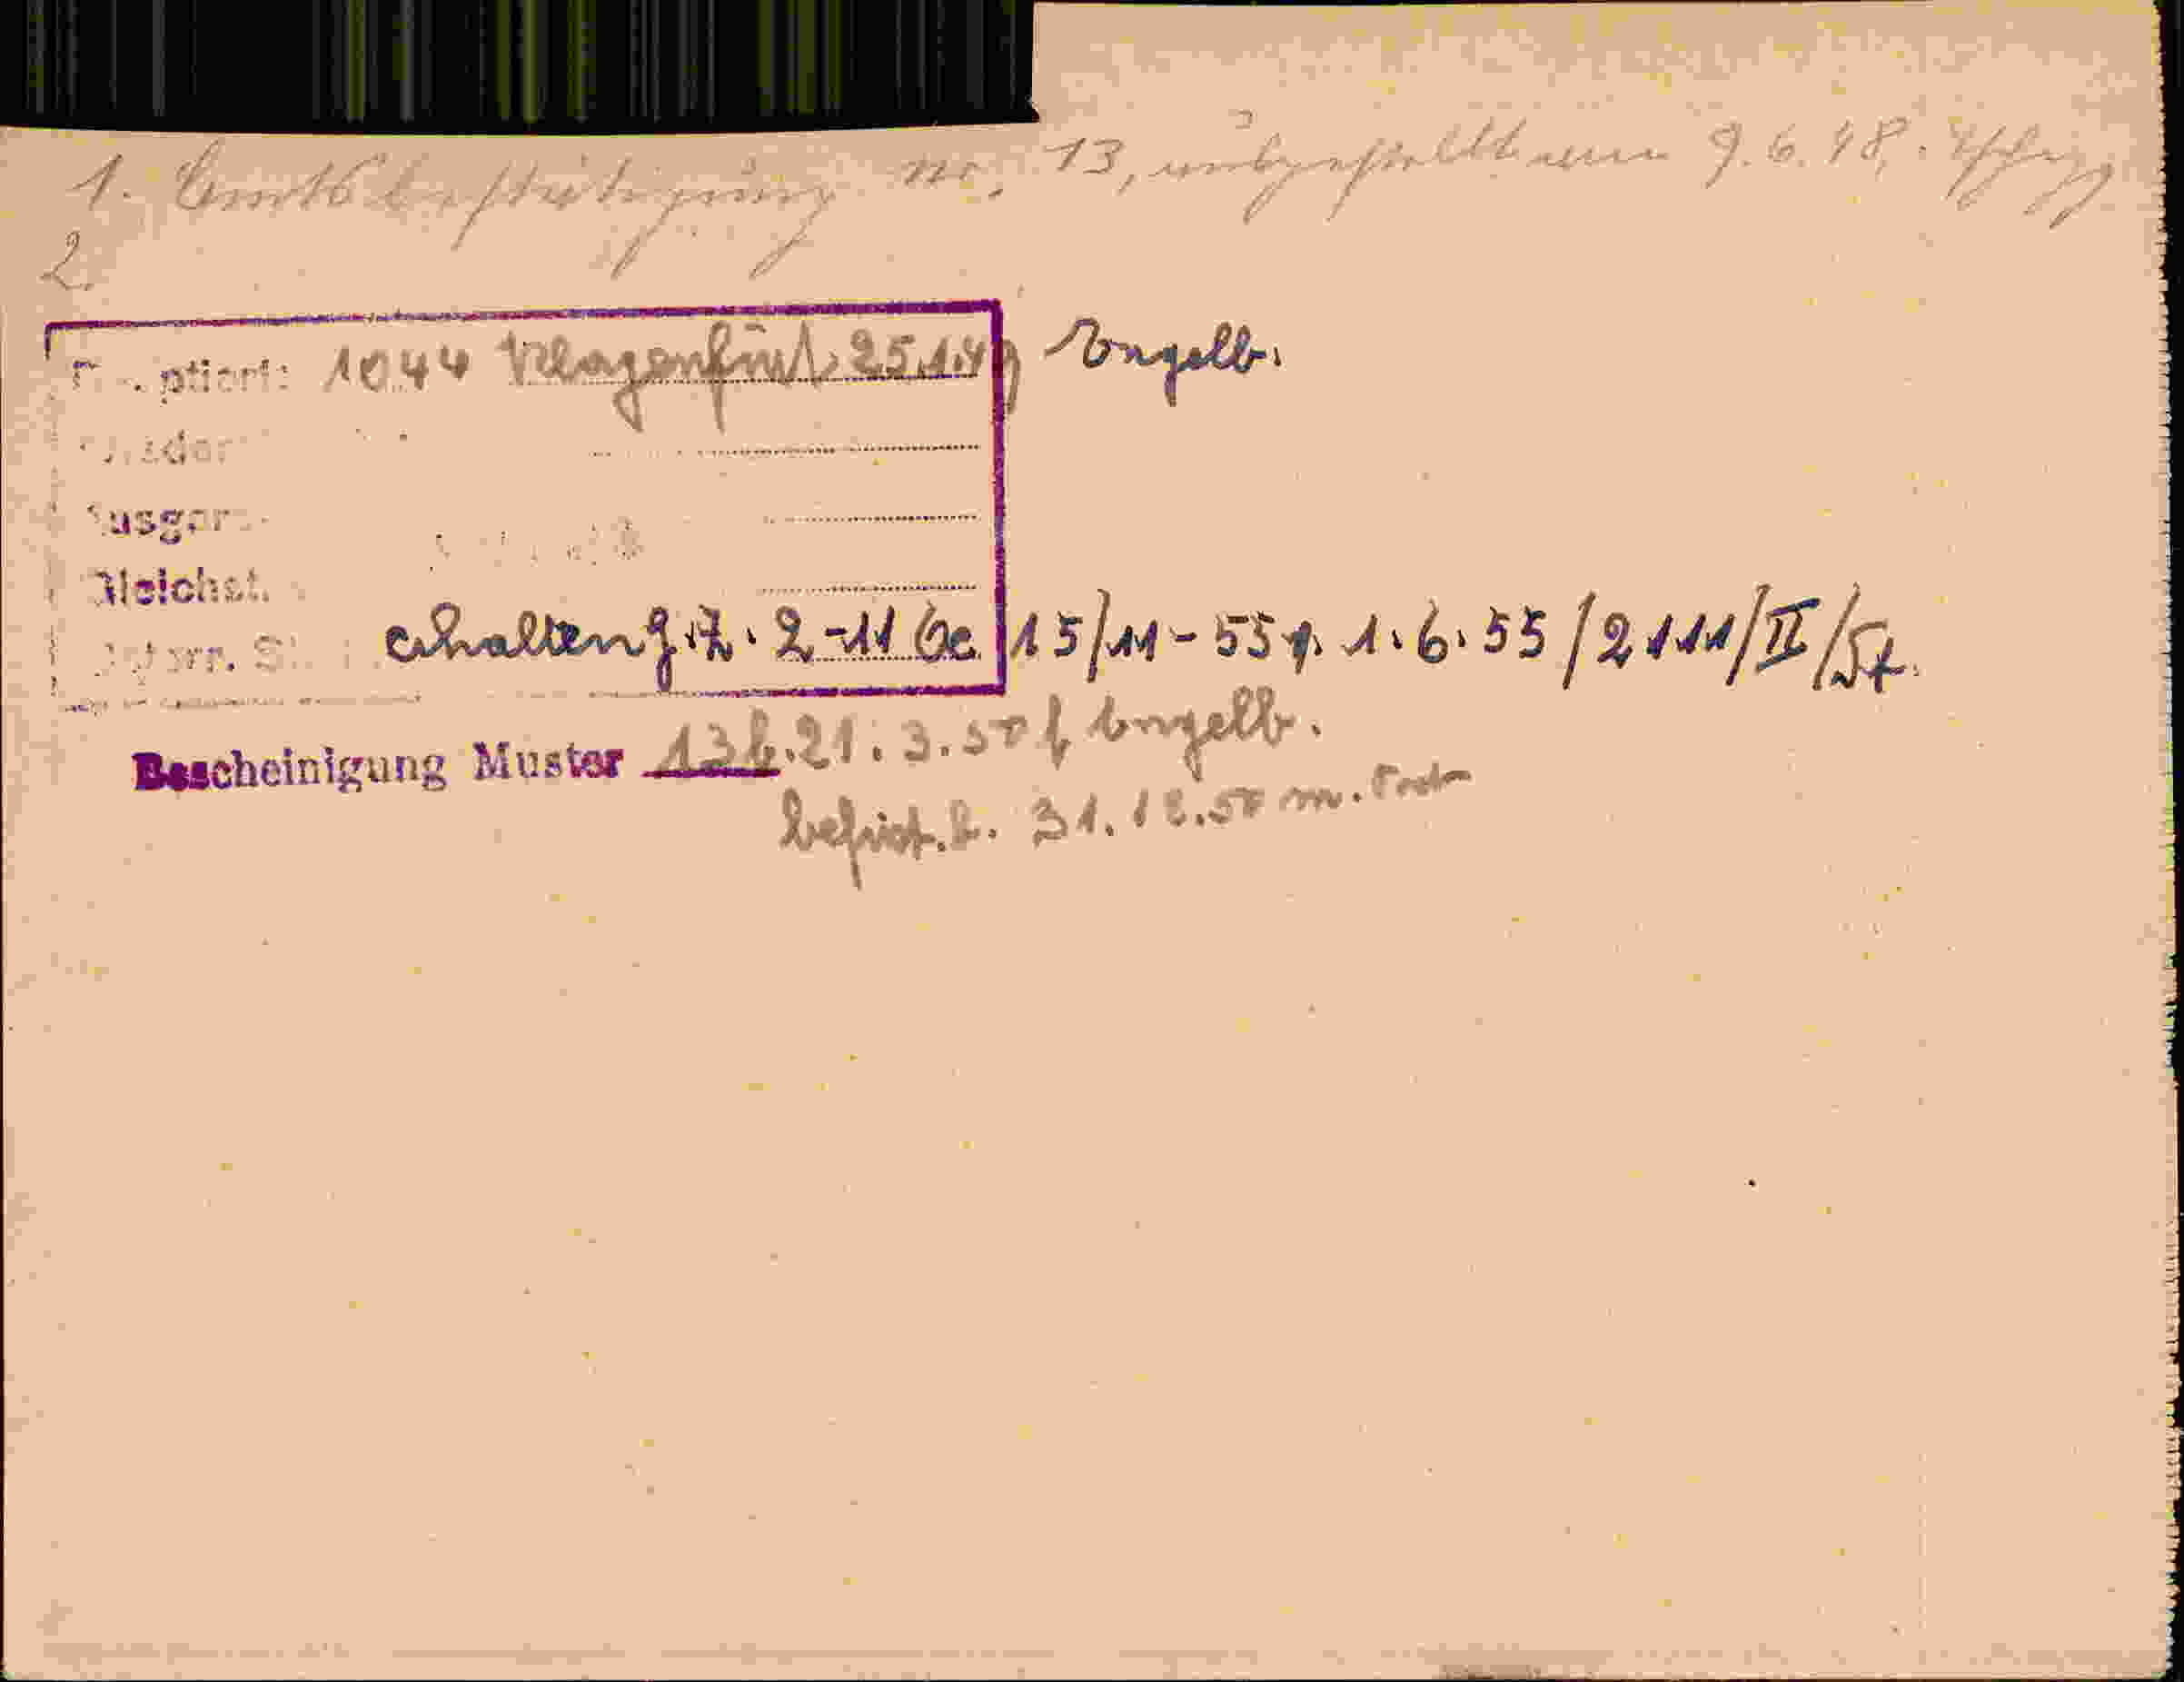 1. Amtsbestätigung Nr. 13, ausgestellt am 9.6.48.
2.
1044 Klagenfurt, 25.1.49 Engelb.
Ausger
Gleichst.
erhalten g. Z. 2-11 Ge 15/11-55 v. 1.6.55/2111/II/St.
Bescheinigung Muster 13b. 21.3.50 Engelb.
befrist. b. 31.12.50 m.